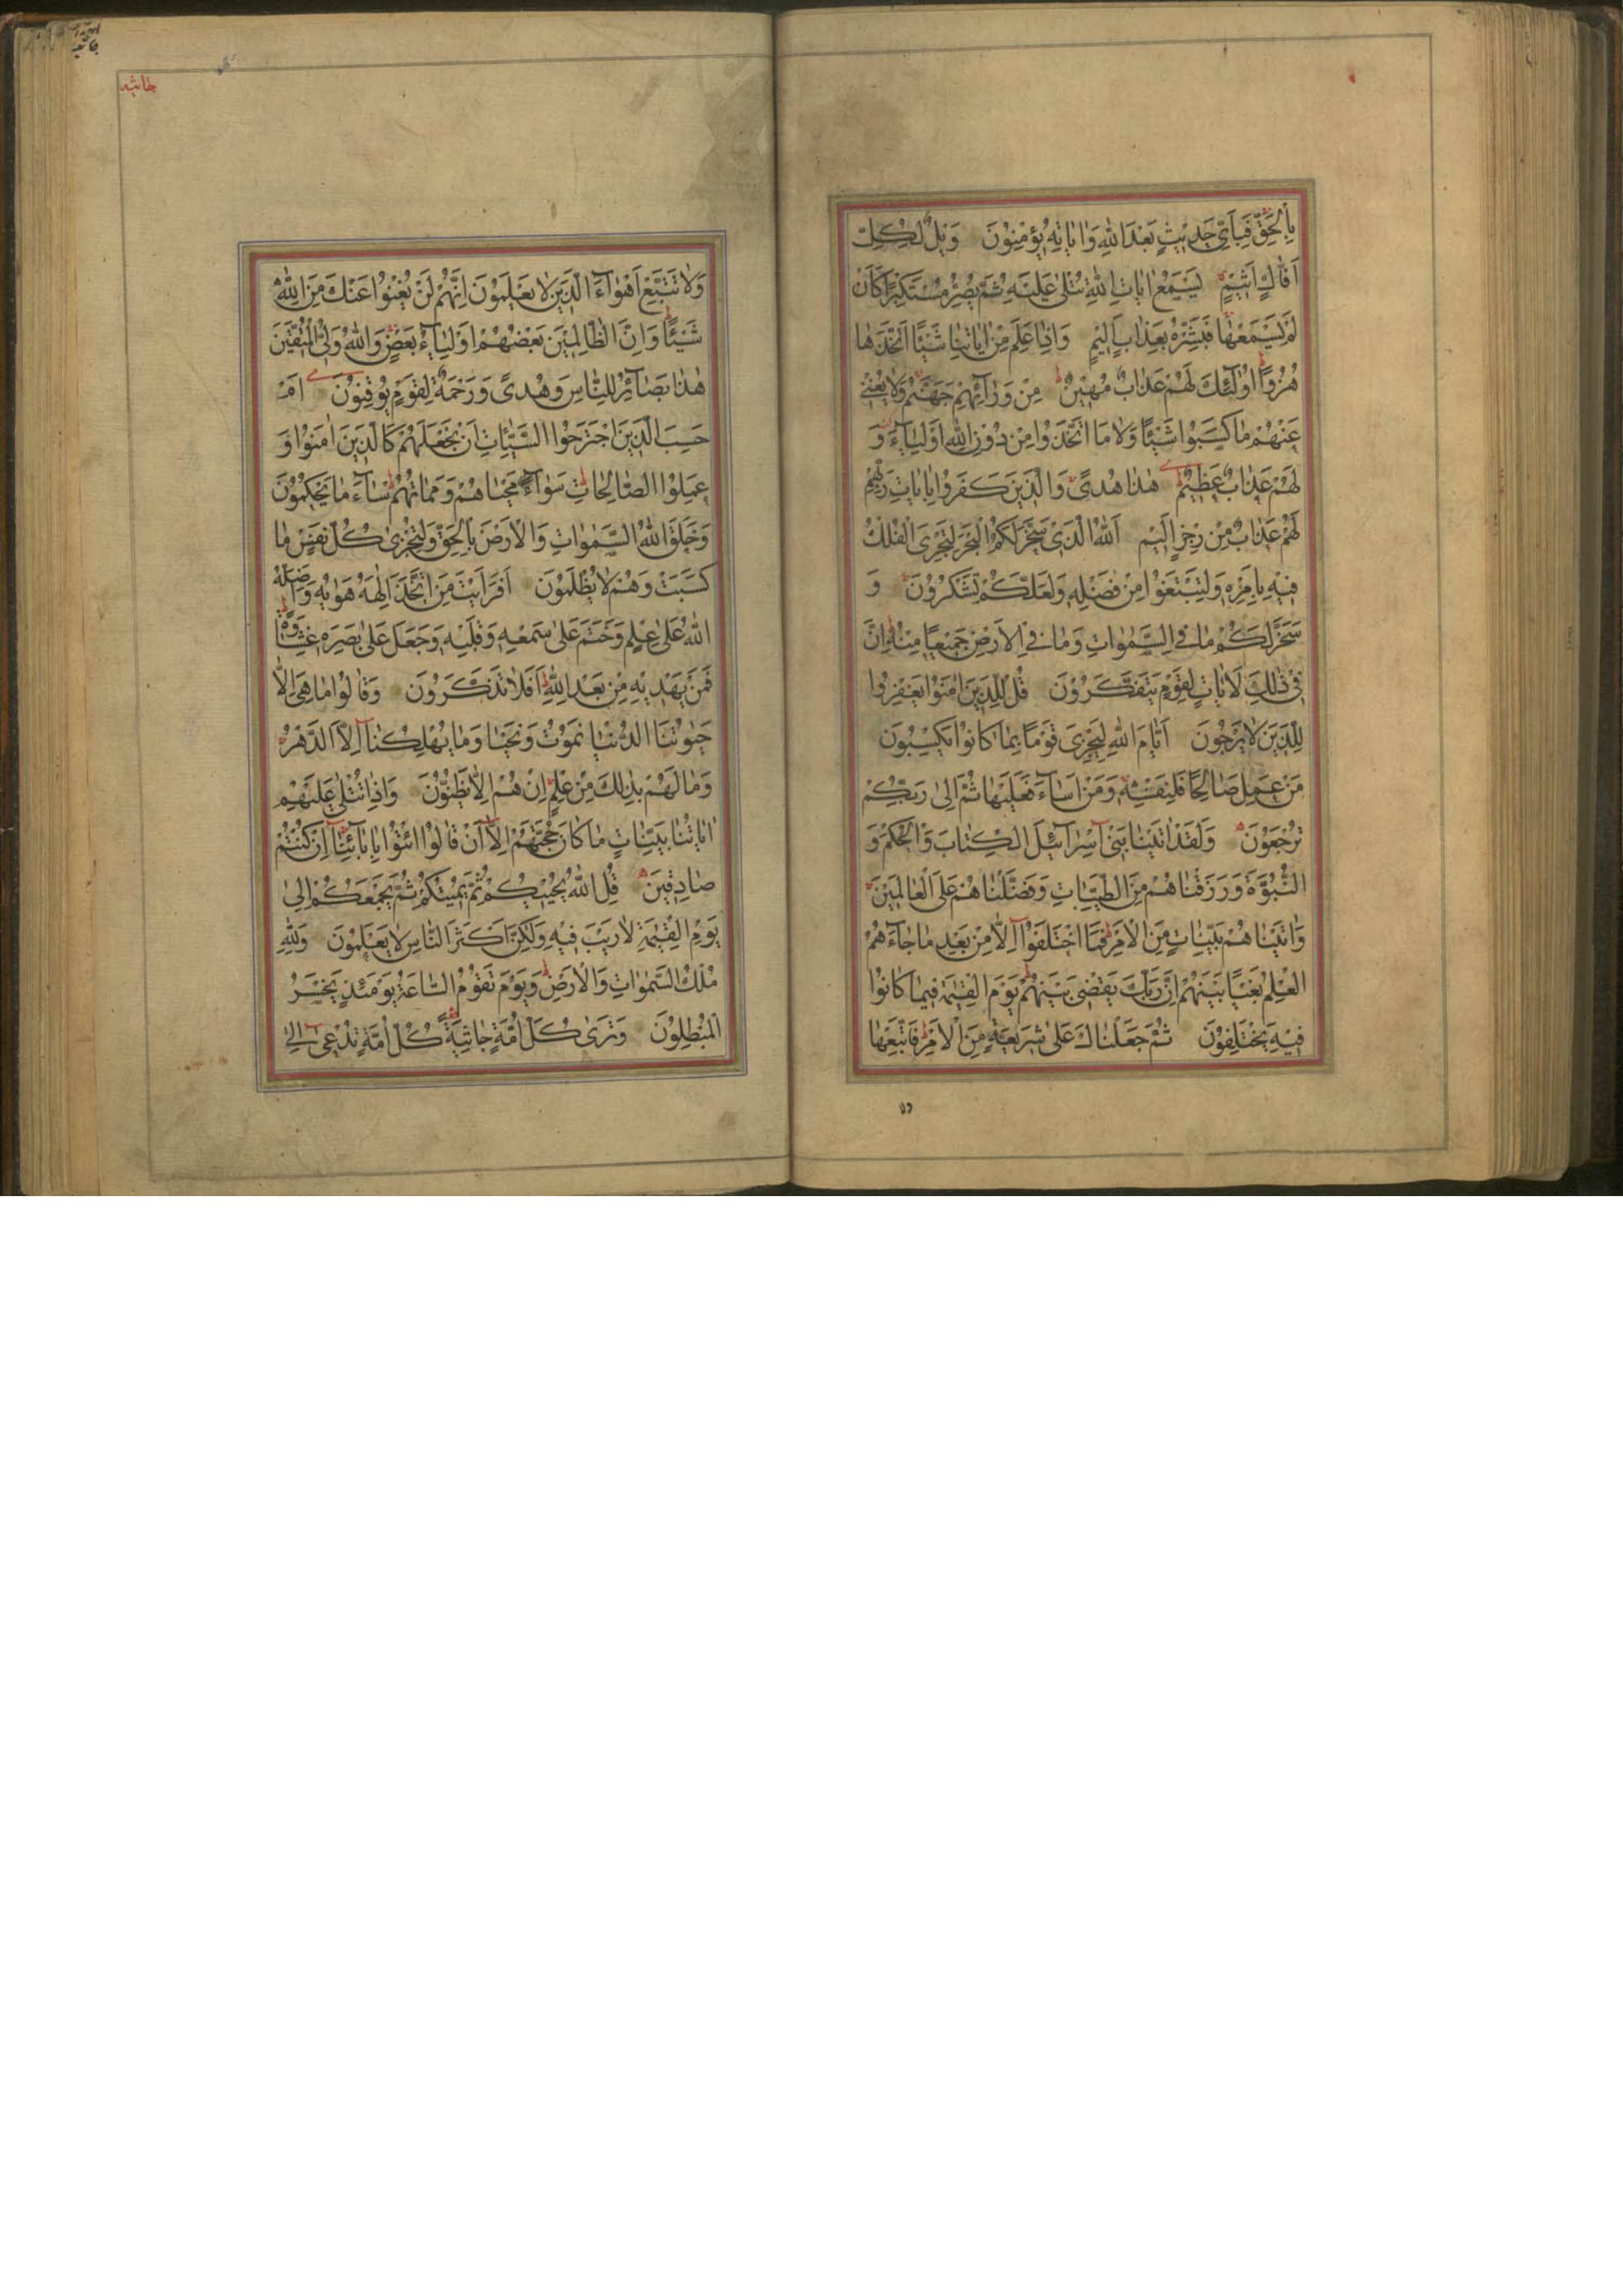 بِالْحَقِّ فَبِاَيِّ حَدِيثٍ بَعْدَ اللّٰهِ وَاٰيَاتِهٖ يُؤْمِنُونَ وَيْلٌ لِكُلِّ
اَفَّاكٍ اَثِيمٍ يَسْمَعُ اٰيَاتِ اللّٰهِ تُتْلٰى عَلَيْهِ ثُمَّ يُصِرُّ مُسْتَكْبِرًا كَاَنْ
لَمْ يَسْمَعْهَا فَبَشِّرْهُ بِعَذَابٍ اَلِيمٍ وَاِذَا عَلِمَ مِنْ اٰيَاتِنَا شَيْئًا اتَّخَذَهَا
هُزُوًا اُولٰئِكَ لَهُمْ عَذَابٌ مُهِينٌ مِنْ وَرَآئِهِمْ جَهَنَّمُ وَلَا يُغْنِي
عَنْهُمْ مَا كَسَبُوا شَيْئًا وَلَا مَا اتَّخَذُوا مِنْ دُونِ اللّٰهِ اَوْلِيَآءَ وَ
لَهُمْ عَذَابٌ عَظِيمٌ هٰذَا هُدًى وَالَّذِينَ كَفَرُوا بِاٰيَاتِ رَبِّهِمْ
لَهُمْ عَذَابٌ مِنْ رِجْزٍ اَلِيمٍ اَللّٰهُ الَّذِي سَخَّرَ لَكُمُ الْبَحْرَ لِتَجْرِيَ الْفُلْكُ
فِيهِ بِاَمْرِهٖ وَلِتَبْتَغُوا مِنْ فَضْلِهٖ وَلَعَلَّكُمْ تَشْكُرُونَ وَ
سَخَّرَ لَكُمْ مَا فِي السَّمٰوَاتِ وَمَا فِي الْاَرْضِ جَمِيعًا مِنْهُ اِنَّ
فِي ذٰلِكَ لَاٰيَاتٍ لِقَوْمٍ يَتَفَكَّرُونَ قُلْ لِلَّذِينَ اٰمَنُوا يَغْفِرُوا
لِلَّذِينَ لَا يَرْجُونَ اَيَّامَ اللّٰهِ لِيَجْزِيَ قَوْمًا بِمَا كَانُوا يَكْسِبُونَ
مَنْ عَمِلَ صَالِحًا فَلِنَفْسِهٖ وَمَنْ اَسَآءَ فَعَلَيْهَا ثُمَّ اِلٰى رَبِّكُمْ
تُرْجَعُونَ وَلَقَدْ اٰتَيْنَا بَنِيٓ اِسْرَآئِيلَ الْكِتَابَ وَالْحُكْمَ وَ
النُّبُوَّةَ وَرَزَقْنَاهُمْ مِنَ الطَّيِّبَاتِ وَفَضَّلْنَاهُمْ عَلَى الْعَالَمِينَ
وَاٰتَيْنَاهُمْ بَيِّنَاتٍ مِنَ الْاَمْرِ فَمَا اخْتَلَفُوٓا اِلَّا مِنْ بَعْدِ مَا جَآءَهُمُ
الْعِلْمُ بَغْيًا بَيْنَهُمْ اِنَّ رَبَّكَ يَقْضِي بَيْنَهُمْ يَوْمَ الْقِيٰمَةِ فِيمَا كَانُوا
فِيهِ يَخْتَلِفُونَ ثُمَّ جَعَلْنَاكَ عَلٰى شَرِيعَةٍ مِنَ الْاَمْرِ فَاتَّبِعْهَا
جاثيه
وَلَا تَتَّبِعْ اَهْوَآءَ الَّذِينَ لَا يَعْلَمُونَ اِنَّهُمْ لَنْ يُغْنُوا عَنْكَ مِنَ اللّٰهِ
شَيْئًا وَاِنَّ الظَّالِمِينَ بَعْضُهُمْ اَوْلِيَآءُ بَعْضٍ وَاللّٰهُ وَلِيُّ الْمُتَّقِينَ
هٰذَا بَصَآئِرُ لِلنَّاسِ وَهُدًى وَرَحْمَةٌ لِقَوْمٍ يُوقِنُونَ اَمْ
حَسِبَ الَّذِينَ اجْتَرَحُوا السَّيِّئَاتِ اَنْ نَجْعَلَهُمْ كَالَّذِينَ اٰمَنُوا وَ
عَمِلُوا الصَّالِحَاتِ سَوَآءً مَحْيَاهُمْ وَمَمَاتُهُمْ سَآءَ مَا يَحْكُمُونَ
وَخَلَقَ اللّٰهُ السَّمٰوَاتِ وَالْاَرْضَ بِالْحَقِّ وَلِتُجْزٰى كُلُّ نَفْسٍ بِمَا
كَسَبَتْ وَهُمْ لَا يُظْلَمُونَ اَفَرَاَيْتَ مَنِ اتَّخَذَ اِلٰهَهُ هَوٰيهُ وَاَضَلَّهُ
اللّٰهُ عَلٰى عِلْمٍ وَخَتَمَ عَلٰى سَمْعِهٖ وَقَلْبِهٖ وَجَعَلَ عَلٰى بَصَرِهٖ غِشَاوَةً
فَمَنْ يَهْدِيهِ مِنْ بَعْدِ اللّٰهِ اَفَلَا تَذَكَّرُونَ وَقَالُوا مَا هِيَ اِلَّا
حَيٰوتُنَا الدُّنْيَا نَمُوتُ وَنَحْيَا وَمَا يُهْلِكُنَآ اِلَّا الدَّهْرُ
وَمَا لَهُمْ بِذٰلِكَ مِنْ عِلْمٍ اِنْ هُمْ اِلَّا يَظُنُّونَ وَاِذَا تُتْلٰى عَلَيْهِمْ
اٰيَاتُنَا بَيِّنَاتٍ مَا كَانَ حُجَّتَهُمْ اِلَّآ اَنْ قَالُوا ائْتُوا بِاٰبَآئِنَآ اِنْ كُنْتُمْ
صَادِقِينَ قُلِ اللّٰهُ يُحْيِيكُمْ ثُمَّ يُمِيتُكُمْ ثُمَّ يَجْمَعُكُمْ اِلٰى
يَوْمِ الْقِيٰمَةِ لَا رَيْبَ فِيهِ وَلٰكِنَّ اَكْثَرَ النَّاسِ لَا يَعْلَمُونَ وَلِلّٰهِ
مُلْكُ السَّمٰوَاتِ وَالْاَرْضِ وَيَوْمَ تَقُومُ السَّاعَةُ يَوْمَئِذٍ يَخْسَرُ
الْمُبْطِلُونَ وَتَرٰى كُلَّ اُمَّةٍ جَاثِيَةً كُلُّ اُمَّةٍ تُدْعٰٓى اِلٰى